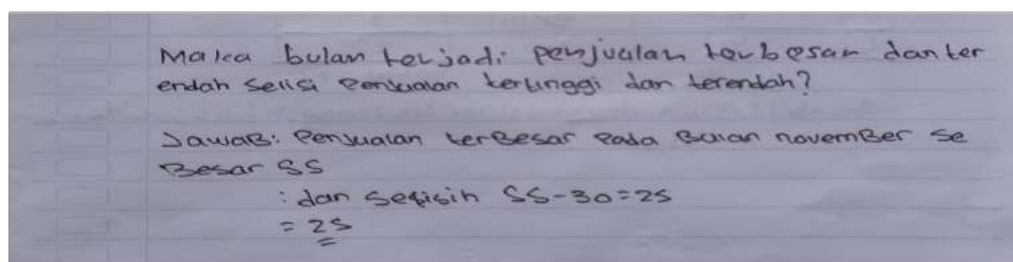 Maka bulan terjadi penjualan terbesar dan ter
endah selisi penjualan tertinggi dan terendah?
Jawab: Penjualan terbesar pada bulan november se
besar 55
: dan selisih 55-30=25
= 25